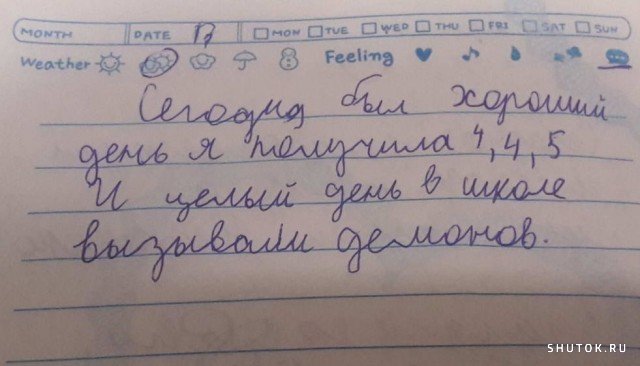 MONTH DATE 17 MON TUE WED THU FRI SAT SUN
Weather Feeling
Сегодня был хороший
день я получила 4, 4, 5
И целый день в школе
вызывали демонов.
SHUTOK.RU